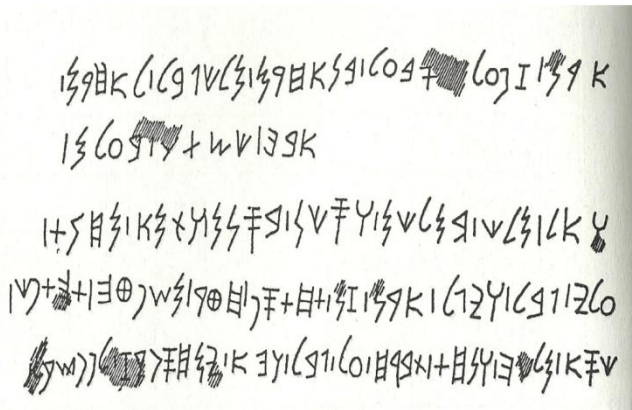 𐤀𐤓𐤍 𐤟 𐤆 𐤐𐤏𐤋 𐤕𐤁𐤏𐤋 𐤟 𐤁𐤍 𐤀𐤇𐤓𐤌 𐤟 𐤌𐤋𐤊 𐤂𐤁𐤋 𐤟 𐤋𐤀𐤇𐤓𐤌 𐤟
𐤀𐤁𐤄 𐤟 𐤊 𐤔𐤕 𐤁𐤏𐤋𐤌 𐤟
𐤅𐤀𐤋 𐤟 𐤌𐤋𐤊 𐤟 𐤁𐤌𐤋𐤊𐤌 𐤟 𐤅𐤎𐤊𐤍 𐤟 𐤁𐤎𐤍𐤌 𐤟 𐤅𐤕𐤌𐤀 𐤟 𐤌𐤇𐤍𐤕 𐤟
𐤏𐤋𐤉 𐤟 𐤂𐤁𐤋 𐤟 𐤅𐤉𐤂𐤋 𐤟 𐤀𐤓𐤍 𐤟 𐤆𐤍 𐤟 𐤕𐤇𐤕𐤎𐤐 𐤟 𐤇𐤈𐤓 𐤟 𐤌𐤔𐤐𐤈𐤄 𐤟 𐤕𐤄𐤕𐤐𐤊 𐤟
𐤊𐤎𐤀 𐤟 𐤌𐤋𐤊𐤄 𐤟 𐤅𐤍𐤇𐤕 𐤟 𐤕𐤁𐤓𐤇 𐤟 𐤏𐤋 𐤟 𐤂𐤁𐤋 𐤟 𐤅𐤄𐤀 𐤟